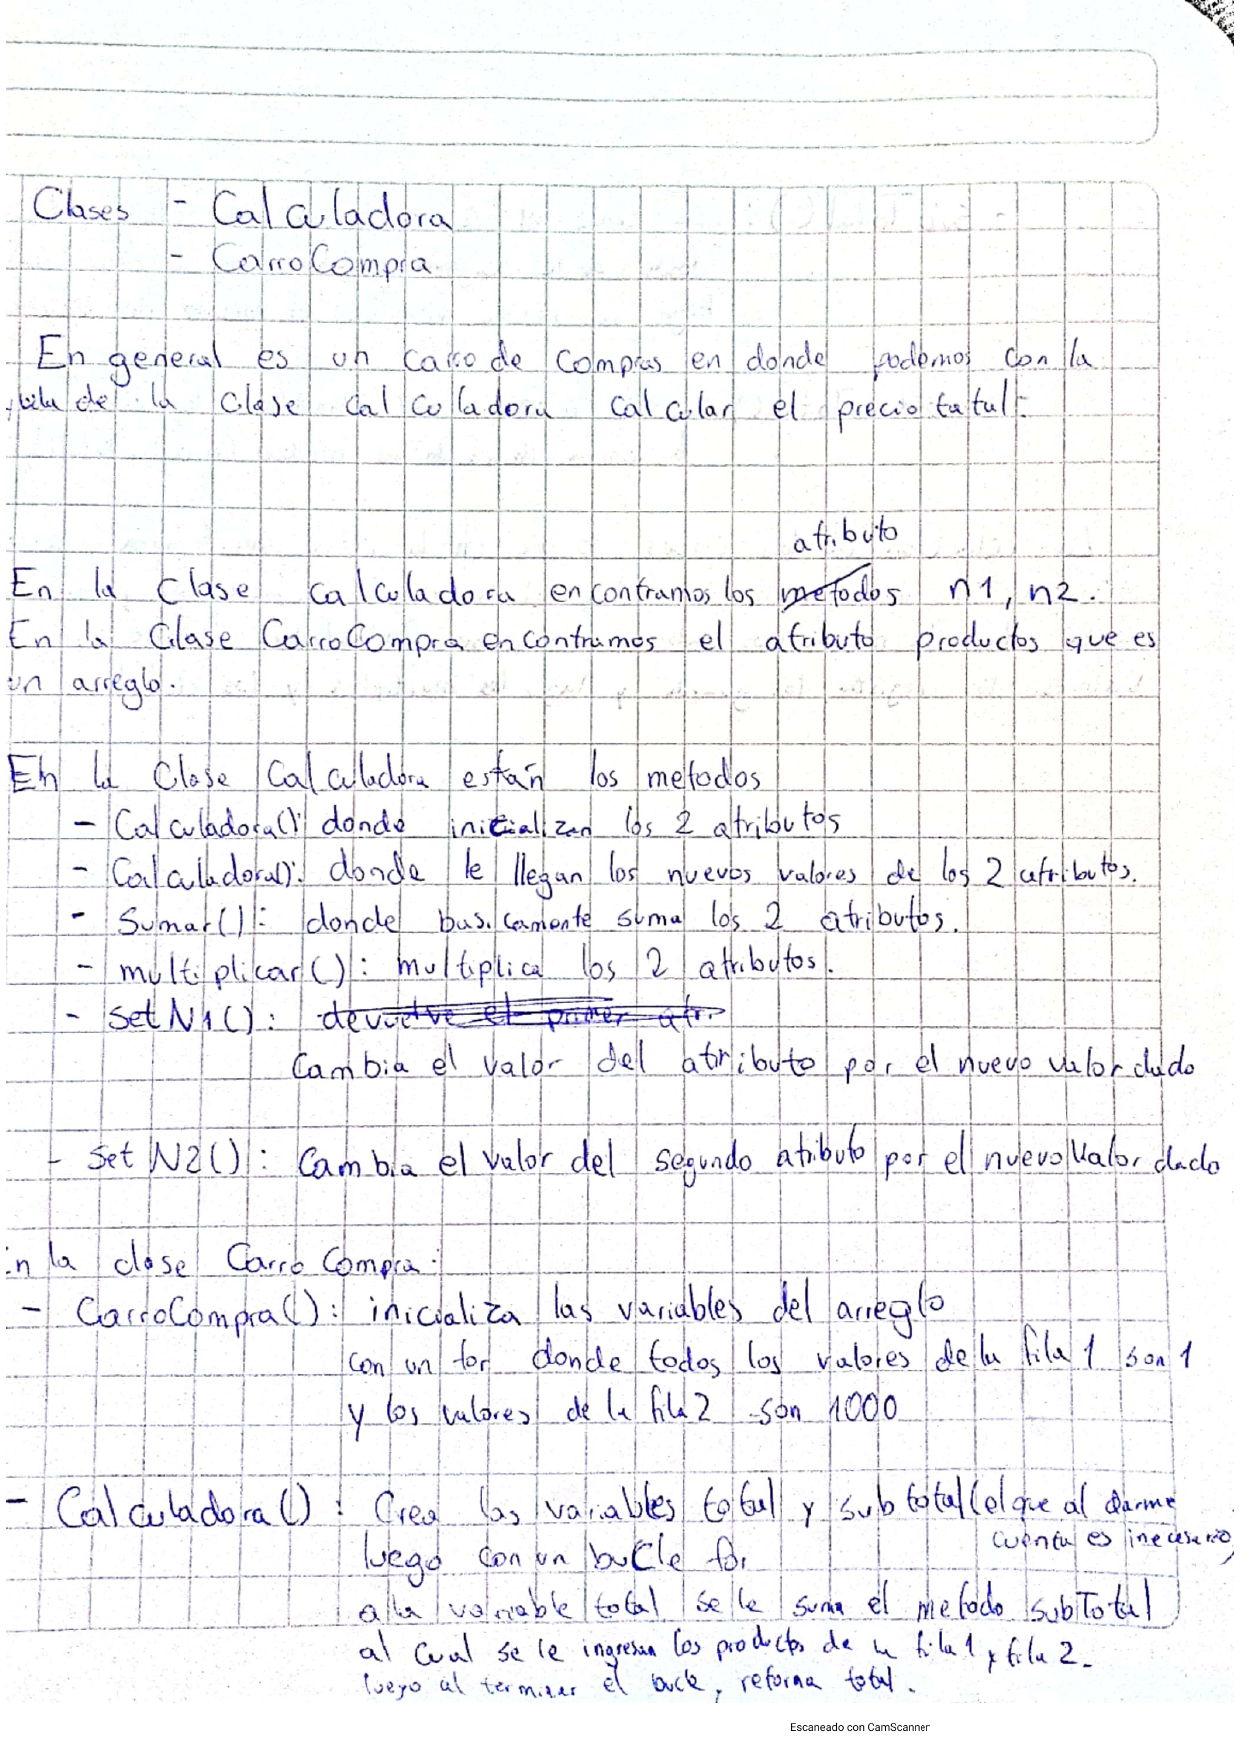 Clases - Calculadora
- CarroCompra
En general es un carro de compras en donde podemos con la
de la clase calculadora calcular el precio total.
atributo
En la clase calculadora encontramos los metodos n1, n2.
En la Clase CarroCompra encontramos el atributo productos que es
un arreglo.
En la Clase Calculadora están los metodos
- Calculadora() donde inicializan los 2 atributos
- Calculadora(): donde le llegan los nuevos valores de los 2 atributos.
- Sumar(): donde basicamente suma los 2 atributos.
- multiplicar(): multiplica los 2 atributos.
- set N1(): devuelve el primer atr.
Cambia el valor del atributo por el nuevo valor dado
- set N2(): Cambia el valor del segundo atributo por el nuevo Valor dado
En la clase Carro Compra:
- CarroCompra(): inicializa las variables del arreglo
con un for donde todos los valores de la fila 1 son 1
y los valores de la fila 2 son 1000
- Calculadora(): Crea las variables total y subtotal (el que al darme
cuenta es inecesario
luego con un bucle for
a la variable total se le suma el metodo subTotal
al cual se le ingresan los productos de la fila 1 y fila 2.
luego al terminar el bucle, retorna total.
Escaneado con CamScanner